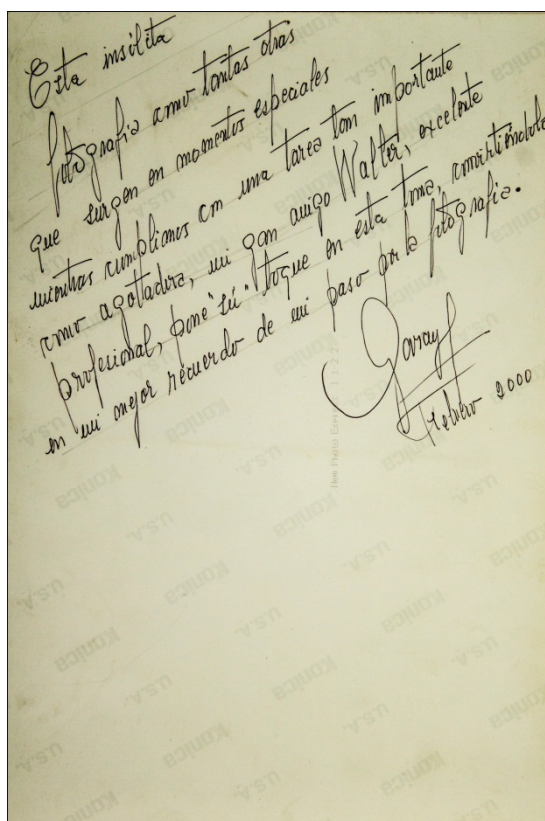 Esta insólita
fotografía como tantas otras
que surgen en momentos especiales
mientras cumplíamos con una tarea tan importante
como agotadora, mi gran amigo Walter, excelente
profesional, pone "su" toque en esta toma, convirtiéndola
en mi mejor recuerdo de mi paso por la fotografía.
Garay
Febrero 2000
Konica
U.S.A.